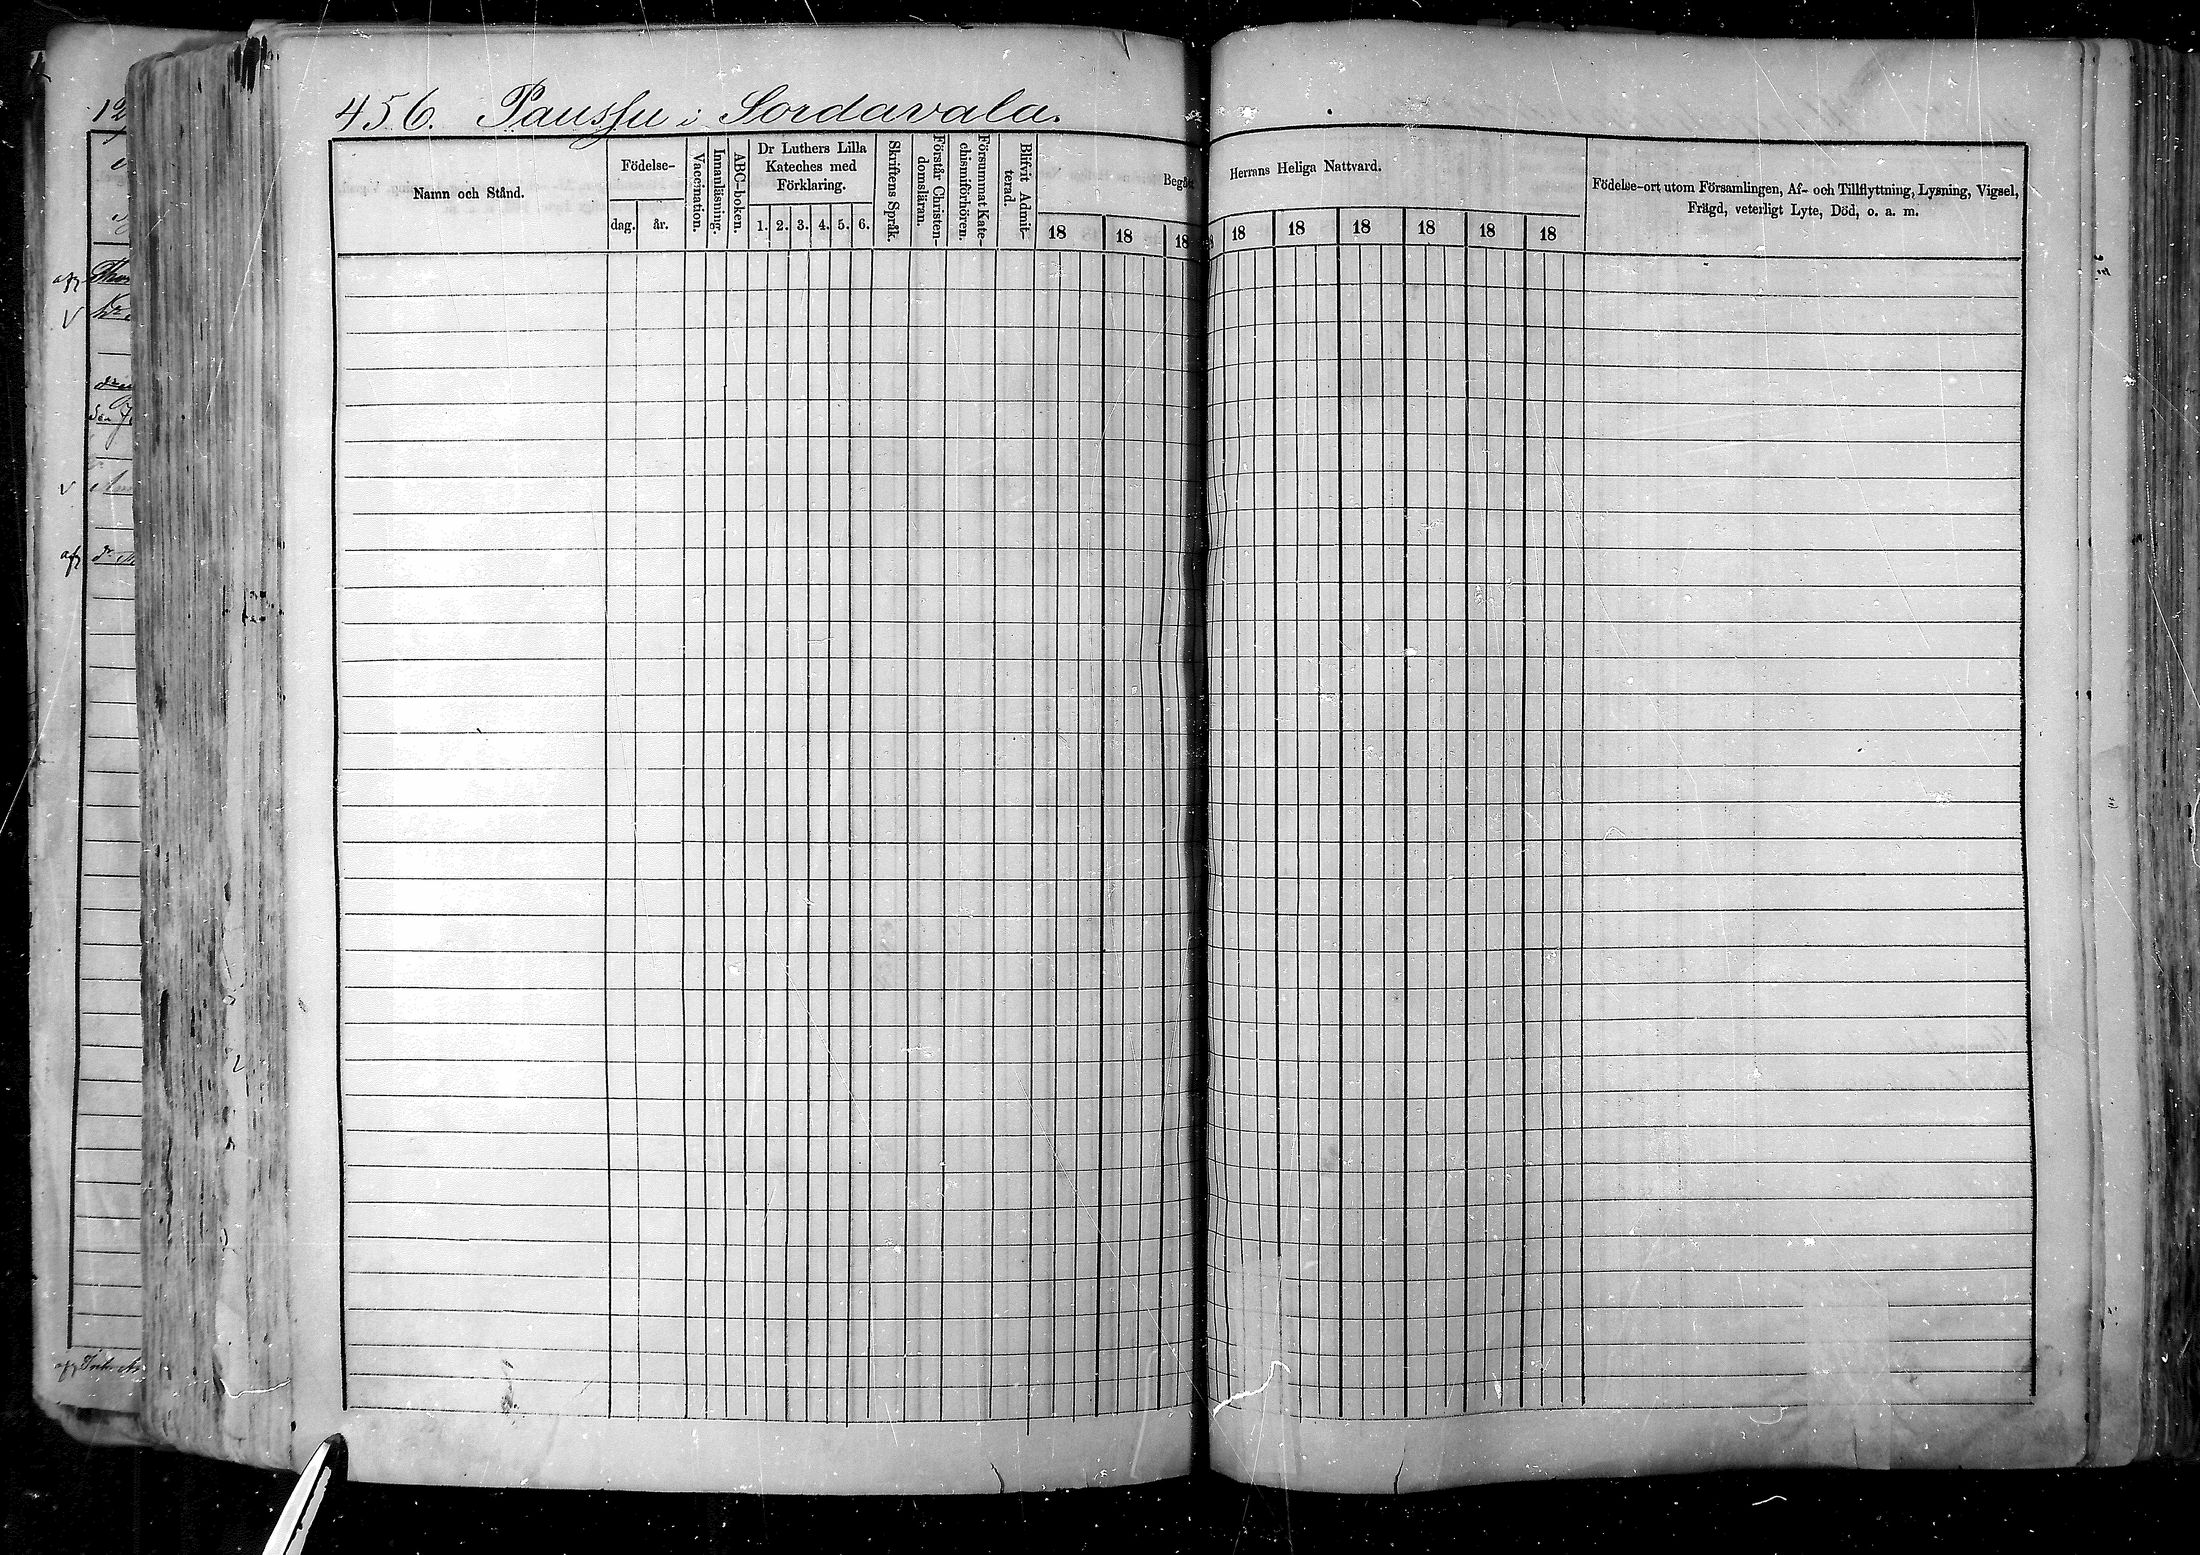 456. Paussu i Sordavala.
Namn och Stånd.
Födelse-
dag.
år.
Vaccination.
Innanläsning.
ABC-boken.
Dr Luthers Lilla
Kateches med
Förklaring.
1. 2. 3. 4. 5. 6.
Skriftens Språk.
Förstår Christen-
domsläran.
Försummat Kate-
chismiförhören.
Blifvit Admit-
terad.
Begått
Herrans Heliga Nattvard.
18 18 18 18 18 18 18 18 18
Födelse-ort utom Församlingen, Af- och Tillflyttning, Lysning, Vigsel,
Frägd, veterligt Lyte, Död, o. a. m.
12